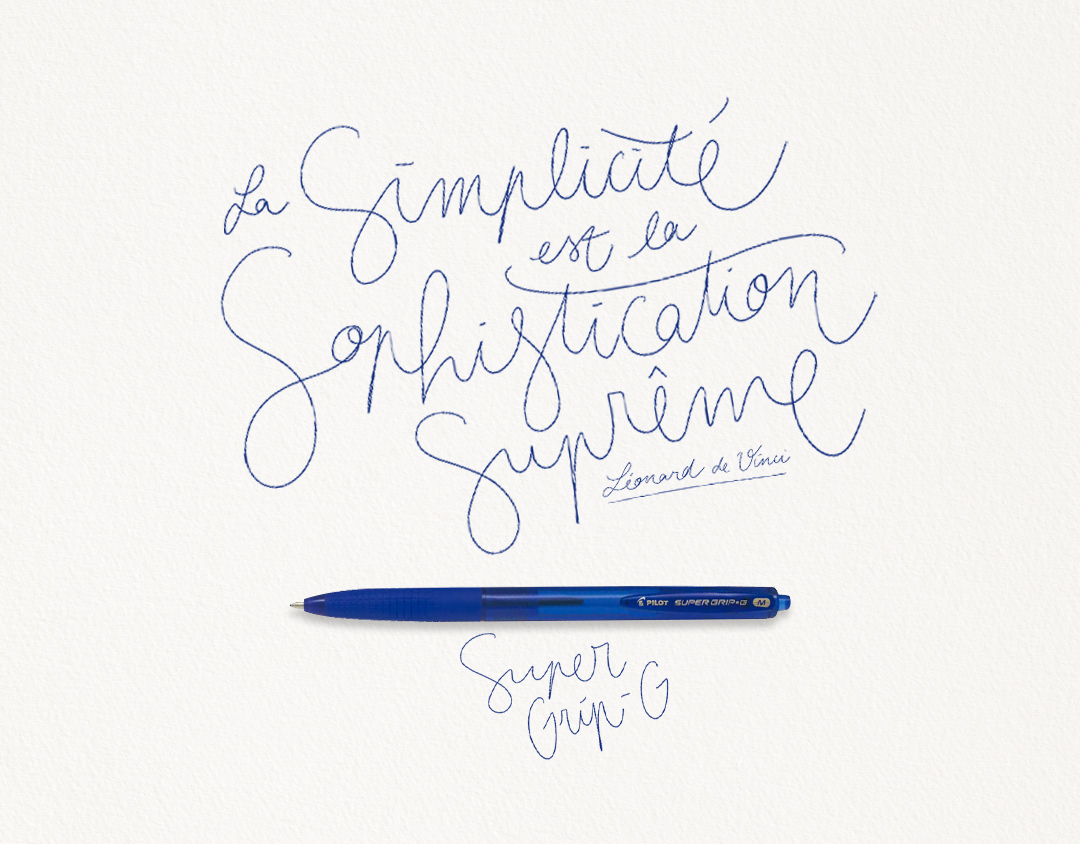 La Simplicité
est la
Sophistication
Suprême
Léonard de Vinci
PILOT SUPER GRIP•G M
Super
Grip-G